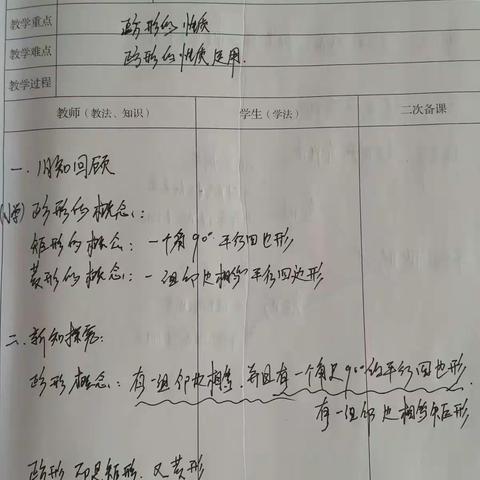 教学重点 正方形的性质
教学难点 正方形的性质运用.
教学过程
教师（教法、知识） 学生（学法） 二次备课
一.旧知回顾
正方形的概念:
矩形的概念: 一个角90°平行四边形
菱形的概念: 一组邻边相等平行四边形
二.新知探究:
正方形概念: 有一组邻边相等,并且有一个角是90°的平行四边形.
有一组邻边相等矩形
正方形 即是矩形,又菱形